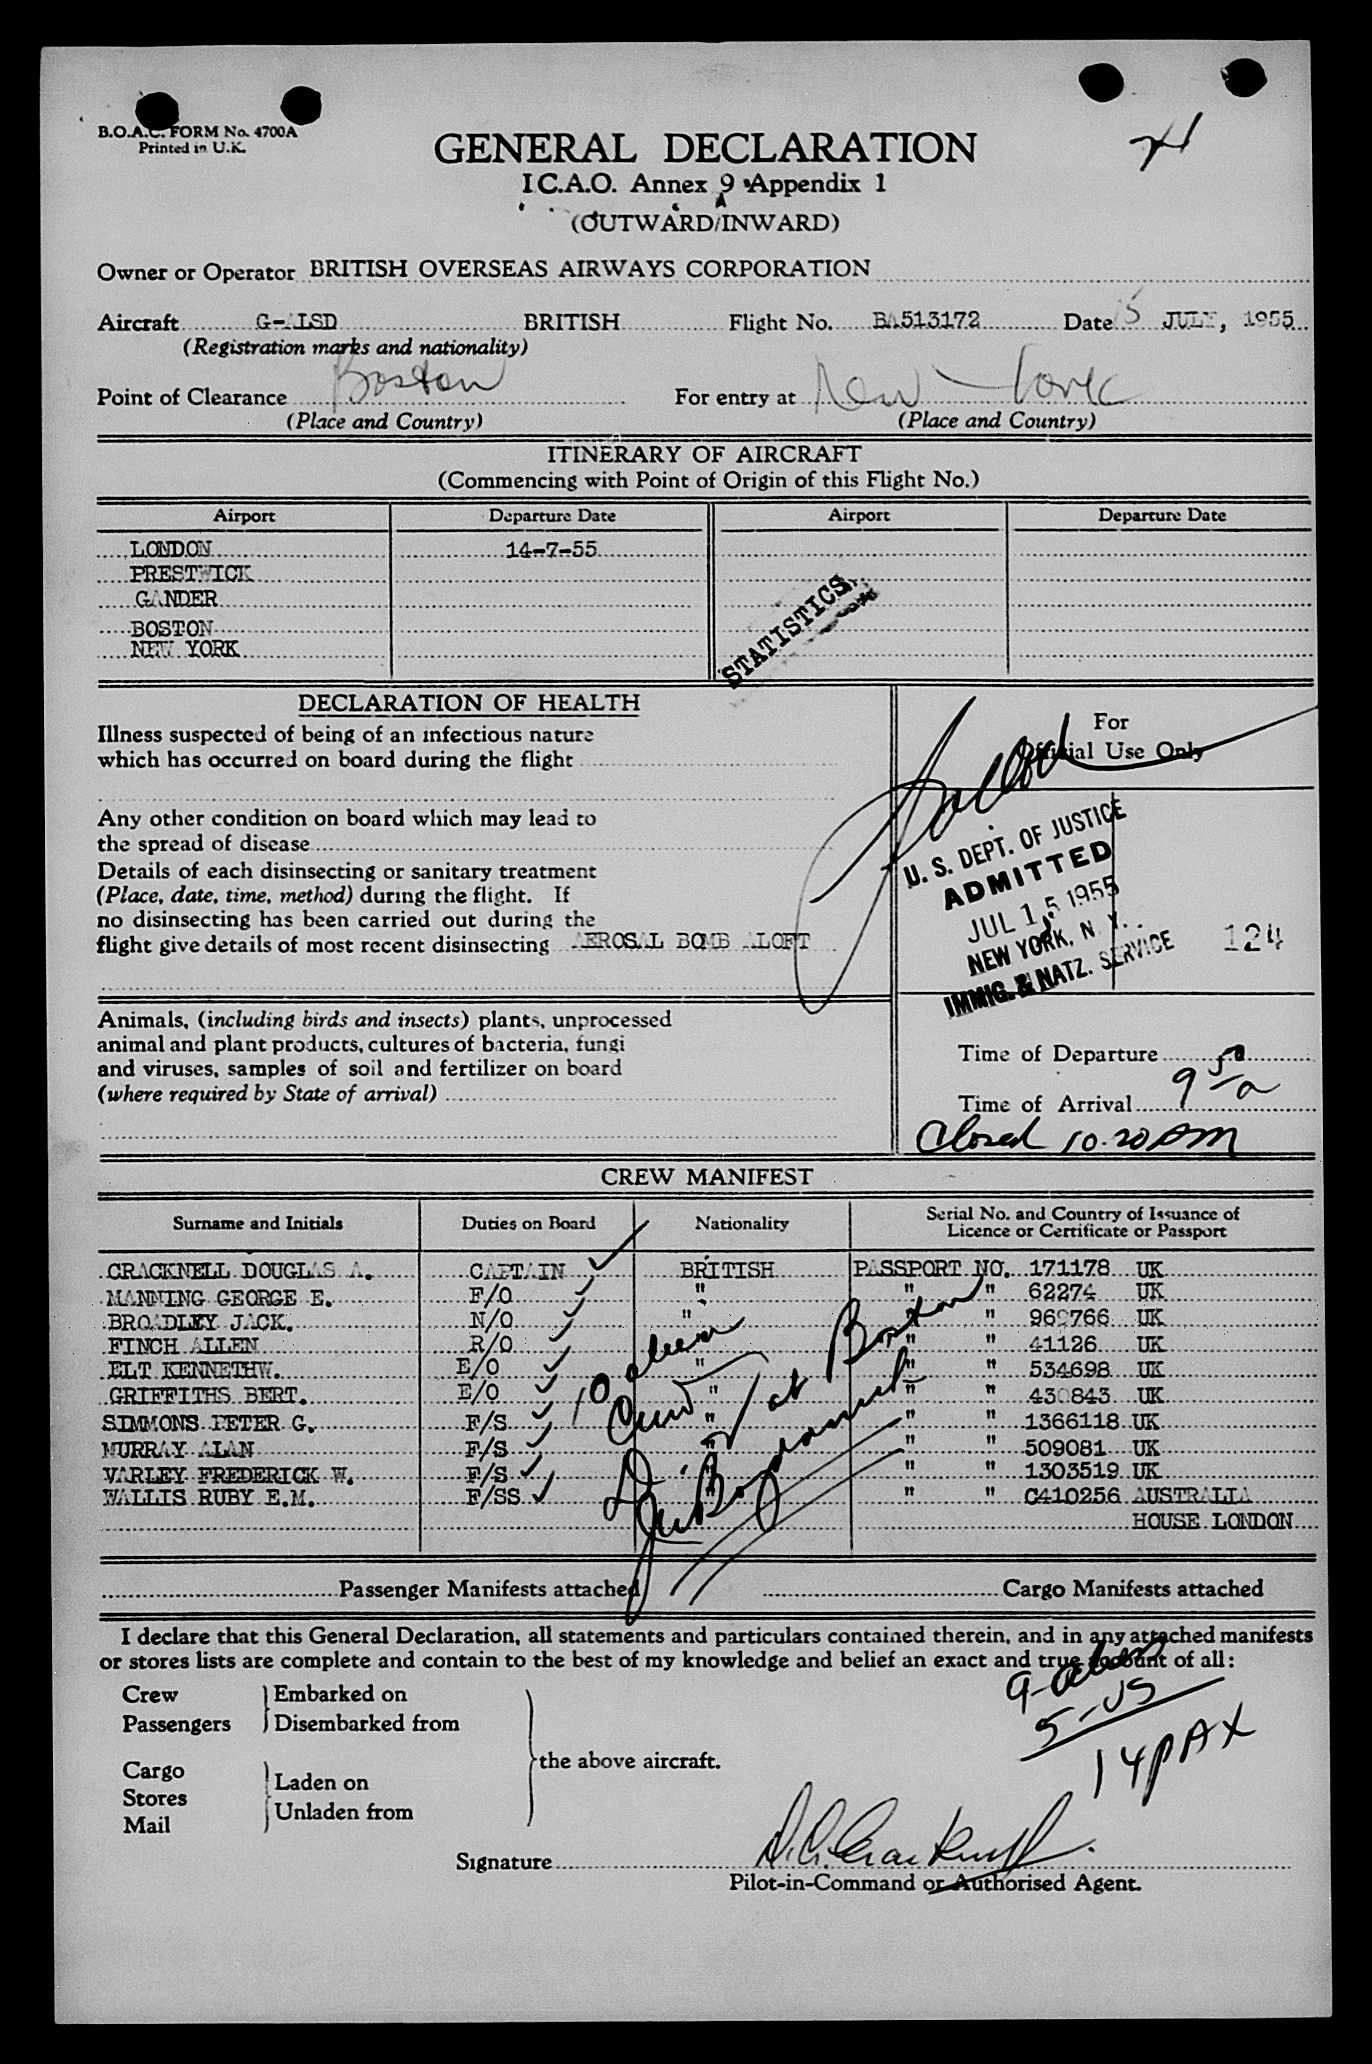 B.O.A.C. FORM No. 4700A
Printed in U.K.
GENERAL DECLARATION
I.C.A.O. Annex 9 Appendix 1
(OUTWARD/INWARD)
Owner or Operator BRITISH OVERSEAS AIRWAYS CORPORATION
Aircraft G-ALSD BRITISH Flight No. BA513172 Date 15 JULY, 1955
(Registration marks and nationality)
Point of Clearance Boston For entry at New York
(Place and Country) (Place and Country)
ITINERARY OF AIRCRAFT
(Commencing with Point of Origin of this Flight No.)
Airport Departure Date Airport Departure Date
LONDON 14-7-55
PRESTWICK
GANDER
BOSTON
NEW YORK
STATISTICS
DECLARATION OF HEALTH
Illness suspected of being of an infectious nature
which has occurred on board during the flight
Any other condition on board which may lead to
the spread of disease
Details of each disinsecting or sanitary treatment
(Place, date, time, method) during the flight. If
no disinsecting has been carried out during the
flight give details of most recent disinsecting AEROSAL BOMB ALOFT
Animals, (including birds and insects) plants, unprocessed
animal and plant products, cultures of bacteria, fungi
and viruses, samples of soil and fertilizer on board
(where required by State of arrival)
For
Official Use Only
U. S. DEPT. OF JUSTICE
ADMITTED
JUL 15 1955
NEW YORK, N. Y.
IMMIG. & NATZ. SERVICE
124
Time of Departure
Time of Arrival 9 50 a
Closed 10.20 AM
CREW MANIFEST
Surname and Initials Duties on Board Nationality Serial No. and Country of Issuance of
Licence or Certificate or Passport
CRACKNELL DOUGLAS A. CAPTAIN BRITISH PASSPORT NO. 171178 UK
MANNING GEORGE E. F/O " " " 62274 UK
BROADLEY JACK. N/O " " 960766 UK
FINCH ALLEN R/O " " 41126 UK
ELT KENNETHW. E/O " " " 534698 UK
GRIFFITHS BERT. E/O " " " 430843 UK
SIMMONS PETER G. F/S " " 1366118 UK
MURRAY ALAN F/S " " " 509081 UK
VARLEY FREDERICK W. F/S " " 1303519 UK
WALLIS RUBY E.M. F/SS " " " C410256 AUSTRALIA
HOUSE LONDON
10 alien
Crew
at Boston
Passenger Manifests attached Cargo Manifests attached
I declare that this General Declaration, all statements and particulars contained therein, and in any attached manifests
or stores lists are complete and contain to the best of my knowledge and belief an exact and true account of all:
Crew Embarked on
Passengers Disembarked from
the above aircraft.
Cargo Laden on
Stores
Mail Unladen from
9-alien
5-US
14 PAX
Signature D.A. Cracknell
Pilot-in-Command or Authorised Agent.